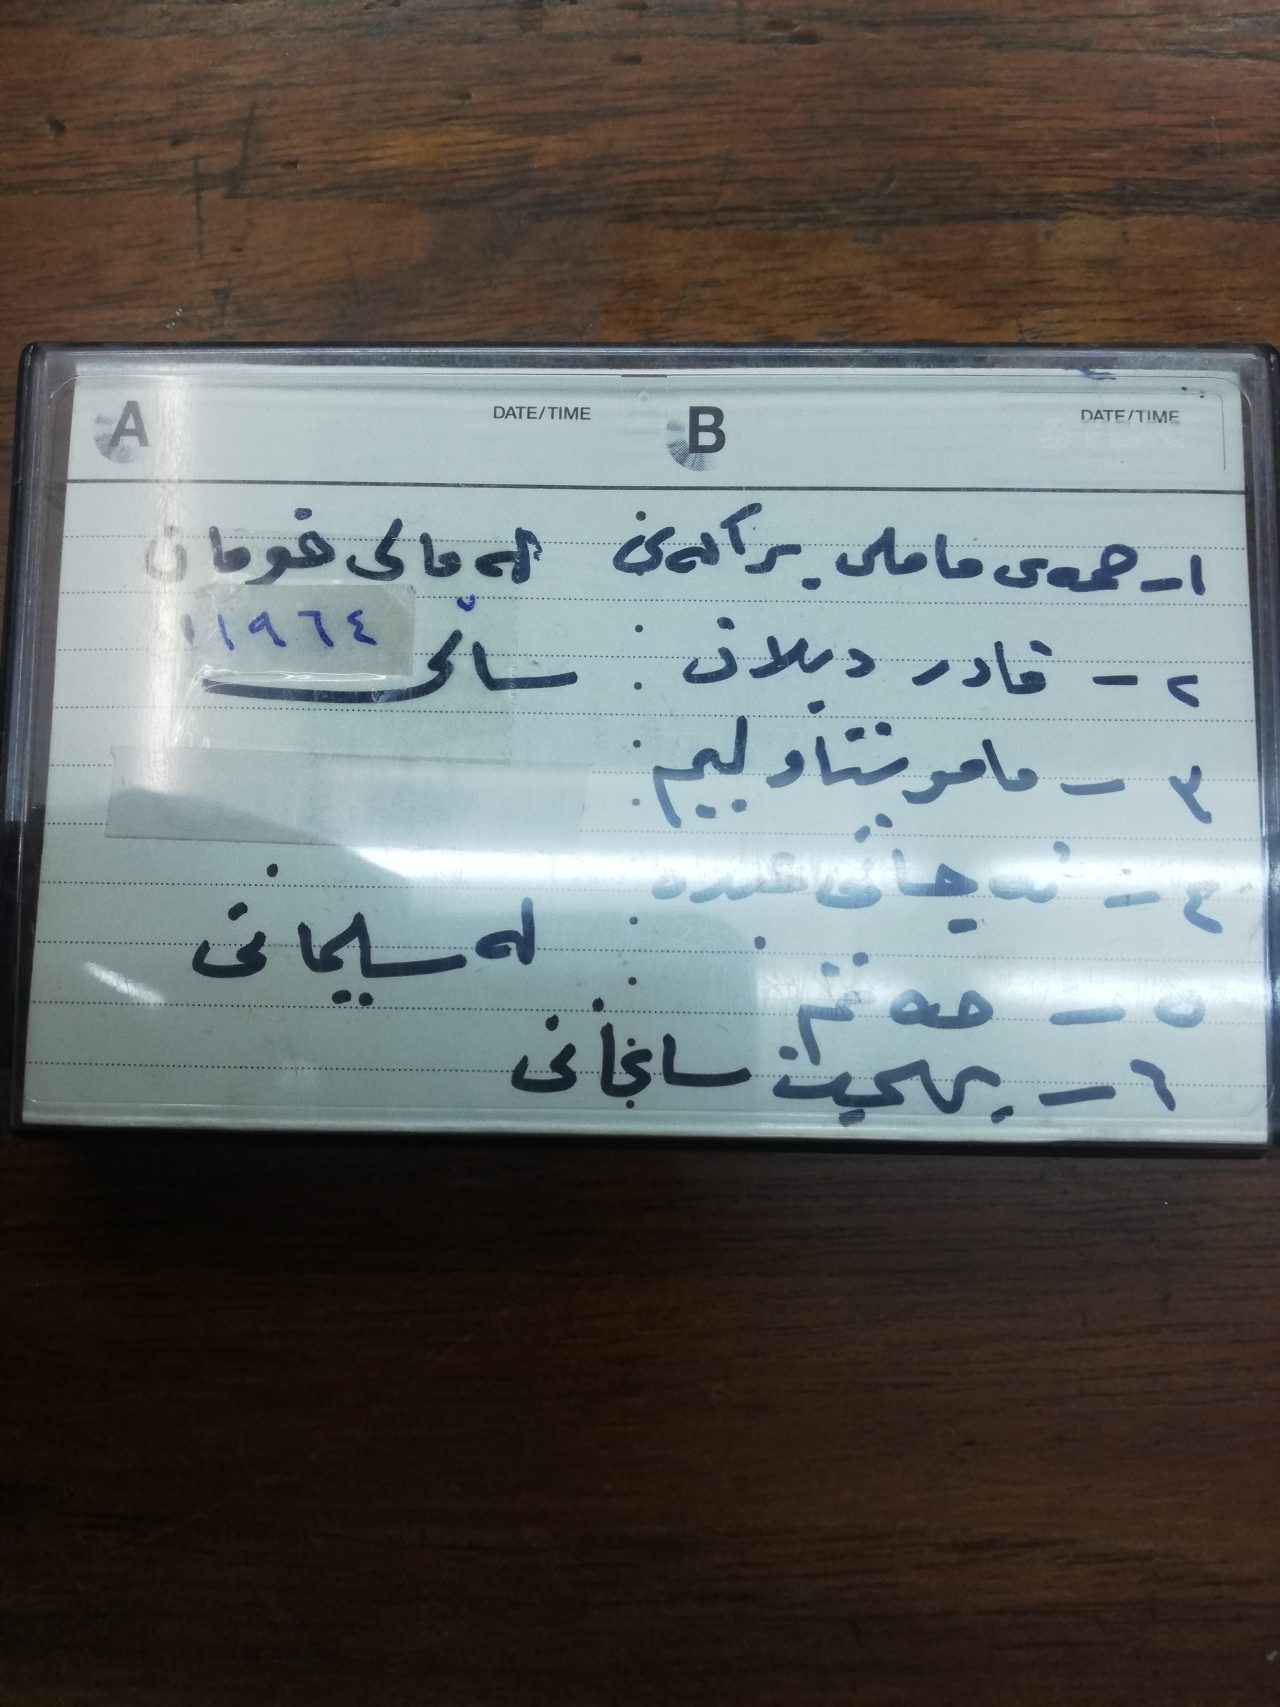 A DATE/TIME B DATE/TIME
١ـ حمەی ماملی بۆکەی لە ماڵی خومان
٢ - قادر دیلان ساڵی ١٩٦٤
٣ - ماموستا ولیم
٤ - ئەجانی
٥ - حەتەم لە سلیمانی
٦ - بهجیت سانحانی